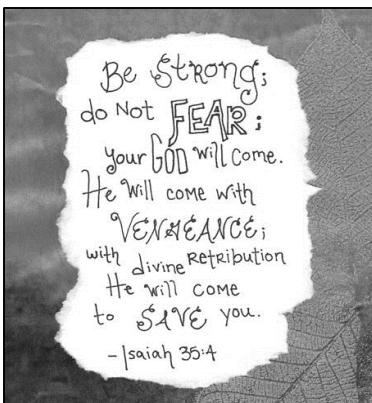 Be Strong;
do Not FEAR;
your GOD will come.
He will come with
VENGEANCE;
with divine Retribution
He will come
to SAVE you.
-Isaiah 35:4